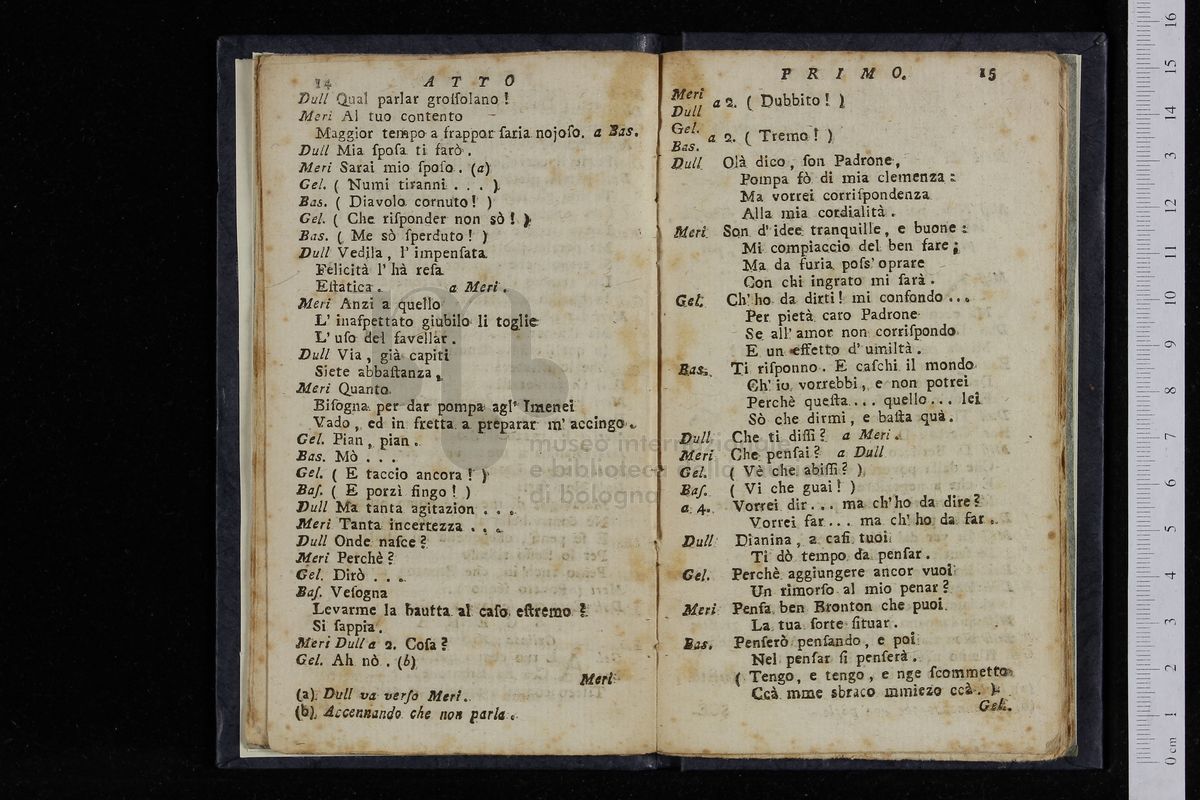 14 ATTO
Dull Qual parlar groſſolano !
Meri Al tuo contento
Maggior tempo a frappor ſaria nojoſo. a Bas.
Dull Mia ſpoſa ti farò .
Meri Sarai mio ſpoſo . (a)
Gel. ( Numi tiranni . . . )
Bas. ( Diavolo cornuto! )
Gel. ( Che riſponder non sò ! )
Bas. ( Me sò ſperduto ! )
Dull Vedila , l' impenſata
Felicità l' hà reſa
Eſtatica . a Meri .
Meri Anzi a quello
L' inaſpettato giubilo li toglie
L' uſo del favellar .
Dull Via , già capiti
Siete abbaſtanza ,
Meri Quanto
Biſogna per dar pompa agl' Imenei
Vado , ed in fretta a preparar m' accingo .
Gel. Pian , pian .
Bas. Mò . . .
Gel. ( E taccio ancora ! )
Baſ. ( E porzì fingo ! )
Dull Ma tanta agitazion . . .
Meri Tanta incertezza . . .
Dull Onde naſce ?
Meri Perchè ?
Gel. Dirò . . .
Baſ. Veſogna
Levarme la bautta al caſo eſtremo ?
Si ſappia .
Meri Dull a 2. Coſa ?
Gel. Ah nò . (b)
Meri
(a) Dull va verſo Meri .
(b) Accennando che non parla .
PRIMO. 15
Meri
Dull a 2. ( Dubbito ! )
Gel.
Bas. a 2. ( Tremo ! )
Dull Olà dico , ſon Padrone ,
Pompa fò di mia clemenza :
Ma vorrei corriſpondenza
Alla mia cordialità .
Meri Son d' idee tranquille , e buone :
Mi compiaccio del ben fare ;
Ma da furia poſs' oprare
Con chi ingrato mi farà .
Gel. Ch' ho da dirti ! mi confondo . . .
Per pietà caro Padrone
Se all' amor non corriſpondo
E un effetto d' umiltà .
Bas. Ti riſponno . E caſchi il mondo
Ch' io vorrebbi , e non potrei
Perchè queſta . . . quello . . . lei
Sò che dirmi , e baſta quà .
Dull Che ti diſſi ? a Meri .
Meri Che penſai ? a Dull
Gel. ( Vè che abiſſi ? )
Baſ. ( Vi che guai ! )
a 4. Vorrei dir . . . ma ch' ho da dire ?
Vorrei far . . . ma ch' ho da far .
Dull Dianina , a caſi tuoi
Ti dò tempo da penſar .
Gel. Perchè aggiungere ancor vuoi
Un rimorſo al mio penar ?
Meri Penſa ben Bronton che puoi
La tua ſorte ſituar .
Bas. Penſerò penſando , e poi
Nel penſar ſi penſerà .
( Tengo , e tengo , e nge ſcommetto
Ccà mme sbraco mmiezo ccà . )
Gel.
museo internazionale
e biblioteca della
di bologna